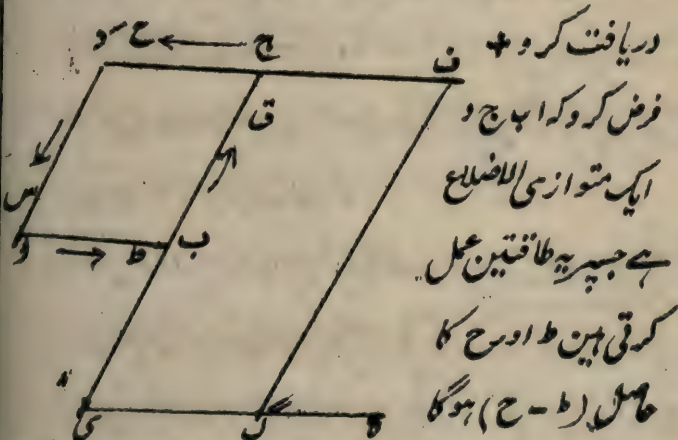 دریافت کرو +
فرض کرو کہ ا ب ج د
ایک متوازی الاضلاع
ہے جسپر یہ طاقتین عمل
کرتی ہین ط اور ح کا
حاصل (ط - ح) ہوگا
د ح ج ف
ق
ر
س
ا ط ب
ی ل ہ